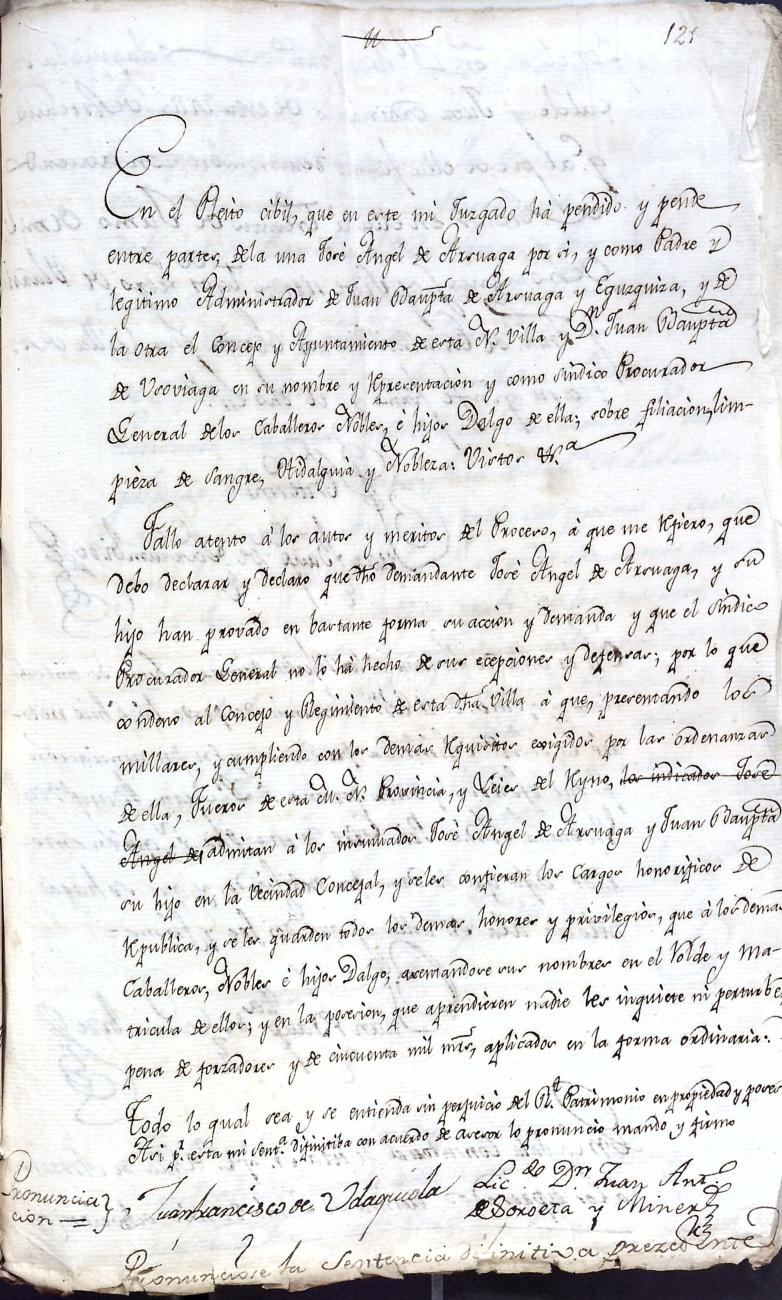 121
En el Pleito cibil, que en este mi Juzgado há pendido y pende
entre partes, dela una José Angel de Arsuaga por si, y como Padre y
legitimo Administrador de Juan Baupta de Arsuaga y Eguzquiza, y de
la otra el Concejo y Ayuntamiento de esta N. Villa y Dn Juan Baupta
de Usoviaga en su nombre y Representación y como sindico Procurador
General delos Caballeros Nobles, é hijos Dalgo de ella; sobre filiacion, lim-
pieza de sangre, Hidalguia y Nobleza: Vistos &a
Fallo atento á los autos y meritos del Proceso, á que me Rfiero, que
debo declarar y declaro que dho demandante José Angel de Arsuaga, y su
hijo han provado en bastante forma su accion y demanda y que el sindico
Procurador General no lo há hecho de sus ecepciones y defensas; por lo que
condeno al Concejo y Regimiento de esta dha Villa á que, presentando los
millares, y cumpliendo con los demas Rquisitos exigidos por las ordenanzas
de ella, Fueros de esta M. N. Provincia, y Leies del Reyno, los indicados José
Angel de admitan á los insinuados José Angel de Arsuaga y Juan Baupta
su hijo en la vecindad Concejal, y seles confieran los Cargos honorificos de
Republica, y se les guarden todos los demas honores y privilegios, que á los demas
Caballeros, Nobles é hijos Dalgo, asentandose sus nombres en el Rolde y Ma-
tricula de ellos; y en la posesion, que aprendieren nadie les inquiete ni perturbe
pena de forzadores y de cincuenta mil mrs, aplicados en la forma ordinaria:
Todo lo qual sea y se entienda sin perjuicio del Rl Patrimonio en propiedad y poses
Asi pr esta mi senta difinitiba con acuerdo de asesor lo pronuncio mando y firmo
Pronuncia
cion =
Juan Francisco de Udaquiola
Licdo Dn Juan Anto
de Soroeta y Miner
Pronunciose la sentencia difinitiva prezedente